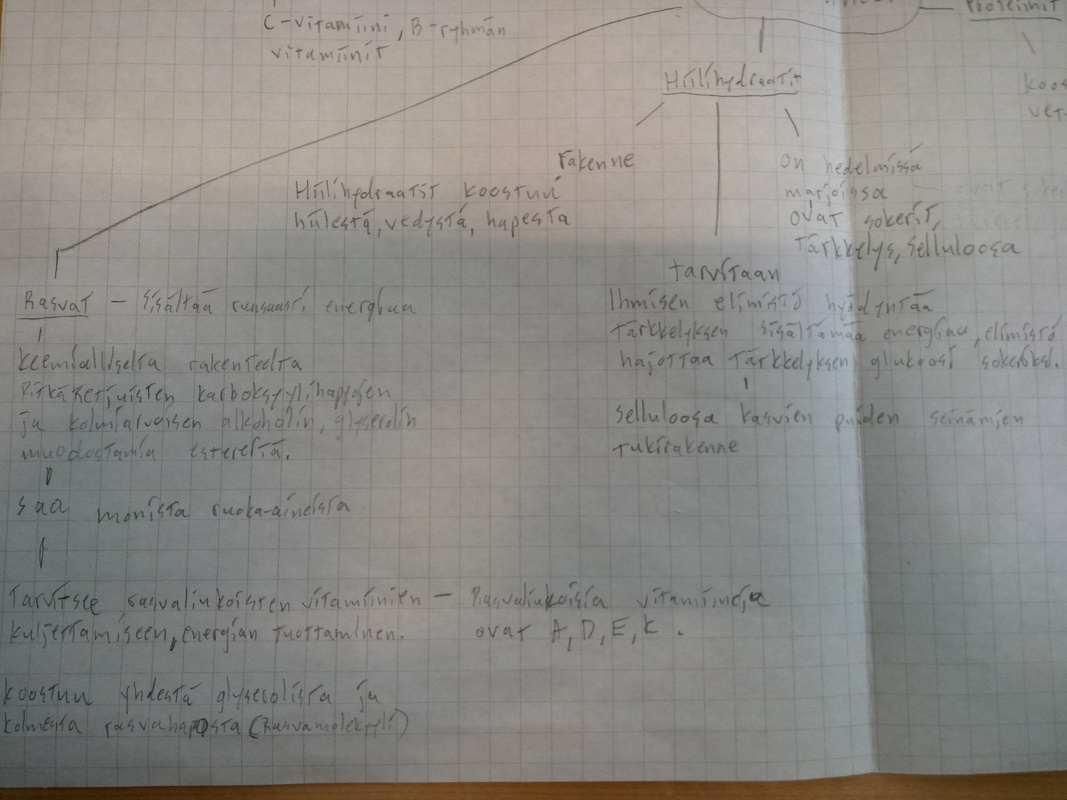 C-vitamiini, B-ryhmän
vitamiinit
Proteiinit
Hiilihydraatit
rakenne
Hiilihydraatit koostuu
hiilestä, vedystä, hapesta
On hedelmissä
marjoissa
ovat sokerit,
tärkkelys, selluloosa
tarvitaan
Ihmisen elimistö hyödyntää
tärkkelyksen sisältämää energiaa, elimistö
hajottaa tärkkelyksen glukoosi sokeriksi.
selluloosa kasvien puiden seinämien
tukirakenne
Rasvat - sisältää runsaasti energiaa
keemialliselta rakenteelta
Pitkäketjuisten karboksyylihappojen
ja kolmiarvoisen alkoholin, glyserolin
muodostamia estereitä.
saa monista ruoka-aineista
Tarvitsee rasvaliukoisten vitamiinien - Rasvaliukoisia vitamiineja
kuljettamiseen, energian tuottaminen. ovat A, D, E, K.
koostuu yhdestä glyserolista ja
kolmesta rasvahaposta (Rasvamolekyyli)